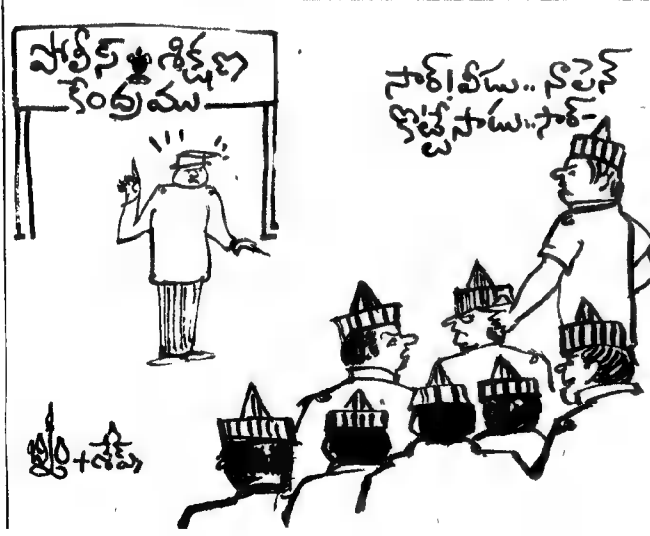 పోలీస్ శిక్షణ
కేంద్రము
సార్! వీడు.. నా పెన్
కొట్టేసాడు.. సార్-